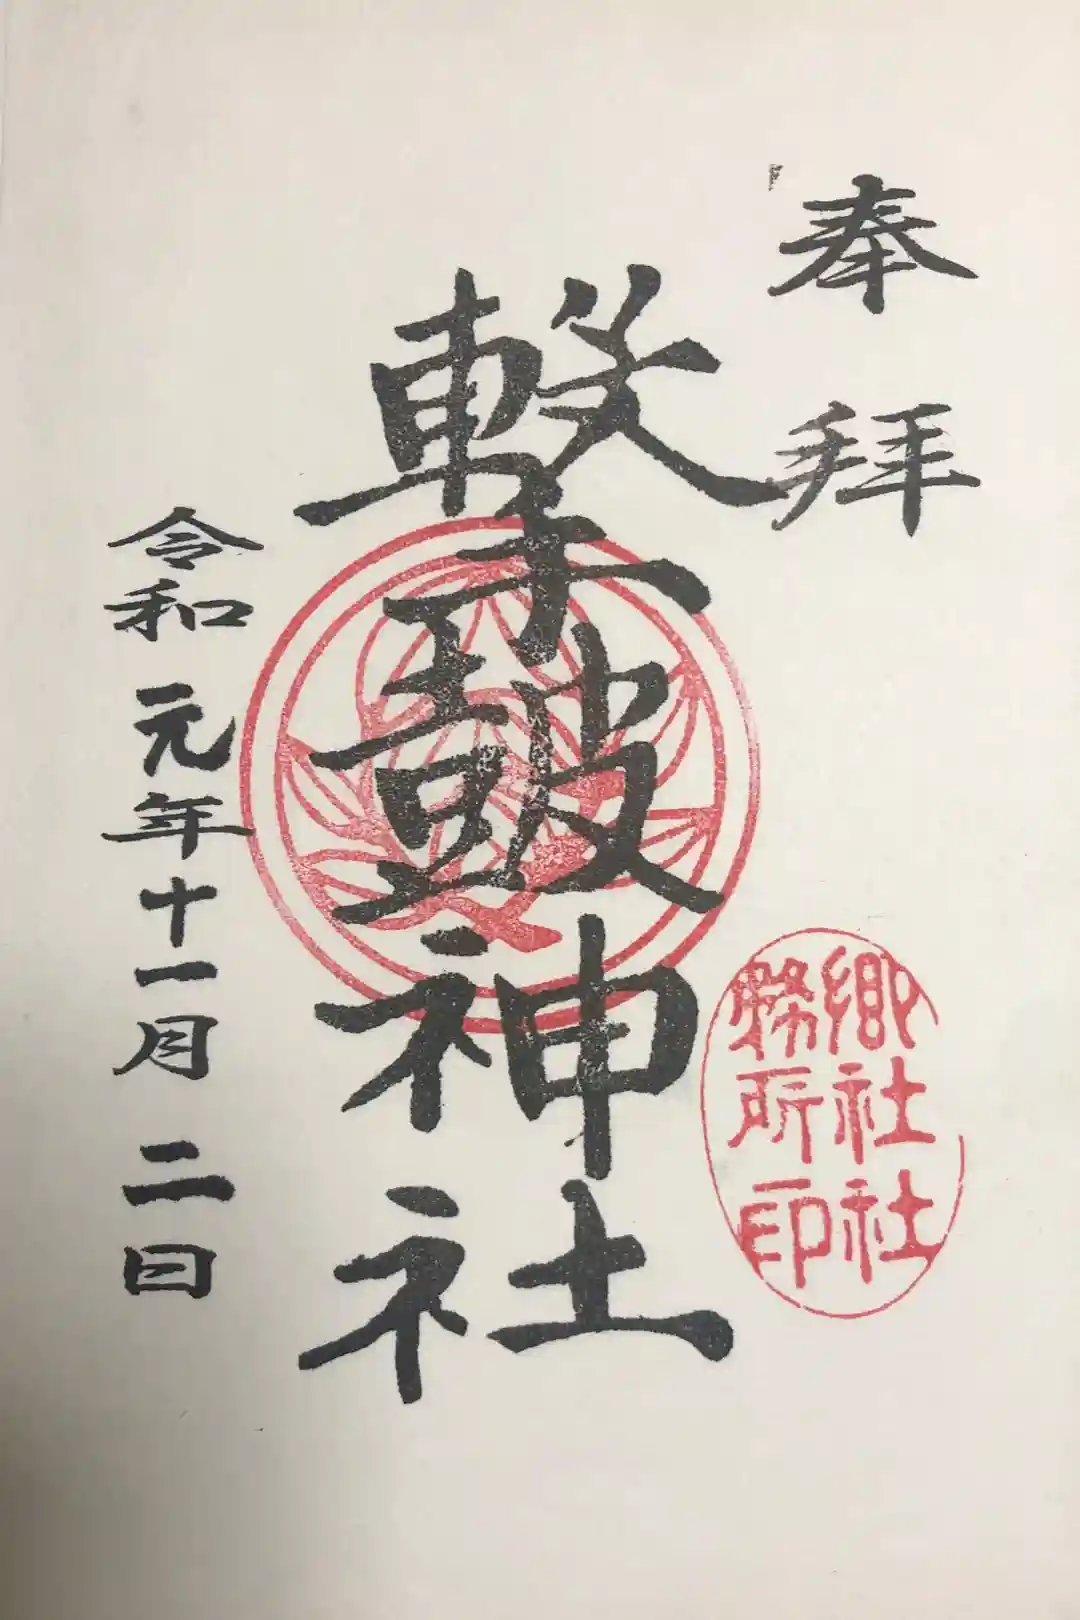 奉拜
撃鼓神社
郷社社
務所印
令和元年十一月二日